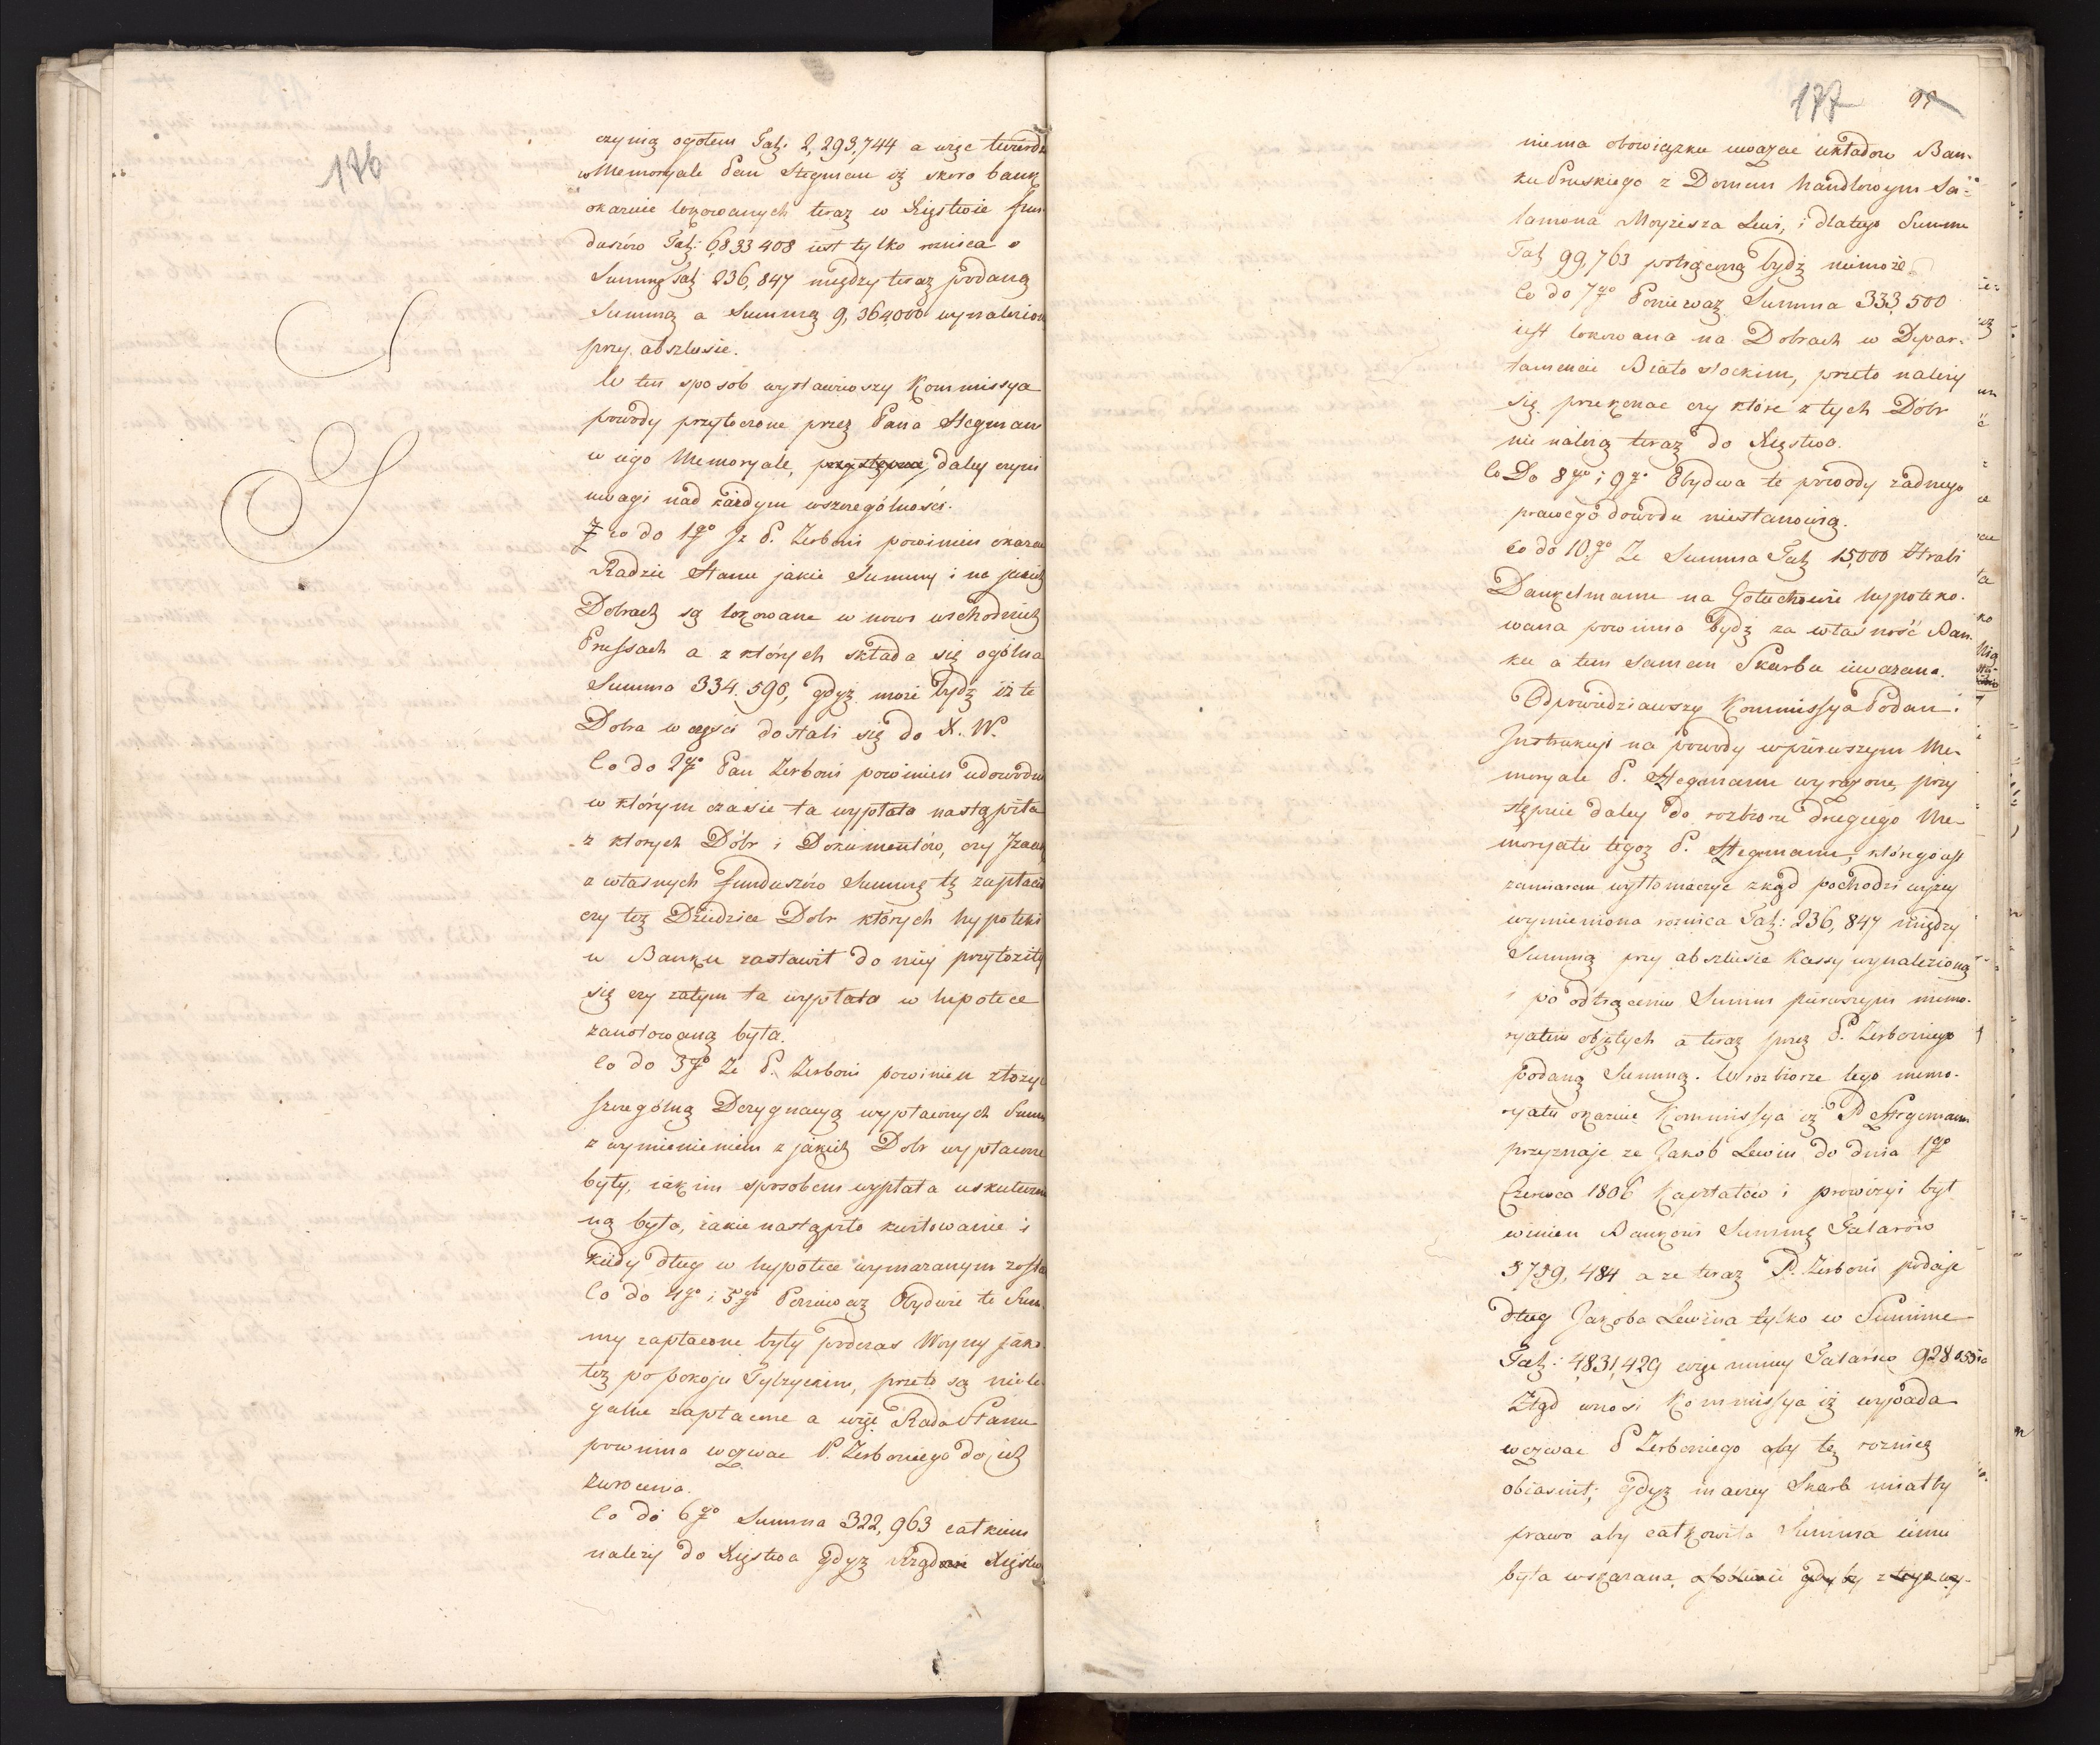 176
czynią ogołem Tal: 2,293,744 a więc twierdzi
w Memoryale Pan Stegman iż skoro bank
okazuie lokowanych teraz w Xięstwie fun-
duszów Tal: 6833408 iest tylko roznica o
Summę Tal 236,847 między teraz podaną
Summą a Summą 9,364000 wynalezion
przy abszlusie.
W ten sposób wystawiwszy Kommissya
powody przytoczone przez Pana Stegman
w iego Memoryale, przystępuie, daley czyni
uwagi nad każdym wszczególności.
co do 1go Iz P. Zerboni powinien okazać
Radzie Stanu jakie Summy i na jakich
Dobrach są lokowane w nowo wschodnich
Prussach a z których składa się ogólna
Summa 334.590, gdyż może bydź iż te
Dobra w części dostali się do X. W.
Co do 2go Pan Zerboni powinien udowodn
w którym czasie ta wypłata nastąpiła
z ktorych Dóbr i Dokumentów, czy
z własnych funduszów Summę tę zapłacił
czy też Dziedzice Dobr których hypoteki
w Banku zastawił do niey przyłożyły
się czy zatym ta wypłata w hipotece
zanotowaną była.
Co do 3go Ze P. Zerboni powinien złożyć
szczególną Dezygnacyą wypłaconych Summ
z wymienieniem z jakich Dobr wypłacone
były, iakim sposobem wypłata uskuteczn
ną była, iakie nastąpiło kwitowanie i
kiedy dług w hypotece wymazanym został
Co do 4go i 5go Ponieważ Obydwie te Sum-
my zapłacone były podczas Woyny jako
też po pokoju Tylzyckim, przeto są niele-
galne zapłacone a więc Rada Stanu
powinna wezwać P. Zerboniego do ich
zwrocenia.
Co do 6go Summa 322,963 całkiem
należy do Xięstwa gdyż Rząd Xięstwa
177 99
niema obowiązku uważać układow Ban-
ku Pruskiego z Domem handlowym Sa-
lamona Moyżesza Lewi, i dlatego Summa
Tal 99,763 potrąconą bydź niemoże
Co do 7go Ponieważ Summa 333,500
iest lokowana na Dobrach w Depar-
tamencie Białostockim, przeto należy
się przekonać czy które z tych Dóbr
nie należą teraz do Xięstwa.
Co Do 8go i 9go Obydwa te powody żadnego
prawego dowodu niestanowią.
Co do 10go Ze Summa Tal 15,000 Hrabi
Dankelmann na Gołuchowie hypoteko-
wana powinna bydź za własność Ban-
ku a tem samem Skarbu uważana.
Odpowiedziawszy Kommissya Podan i
Instrukcyi na powody w pierwszym Me-
moryale P. Stegmann wyrażone, przy
stępuie daley do rozbioru drugiego Me-
moryału tegoż P. Stegmann, którego iest
zamiarem wytłomaczyć zkąd pochodzi wyżey
wymieniona roznica Tal: 236,847 między
Summą przy abszlusie Kassy wynalezioną
i po odtrąceniu Summ pierwszym memo-
ryałem objętych a teraz przez P. Zerboniego
podaną Summą. W rozbiorze tego memo-
ryału okazuie Kommissya iż P Stegmann
przyznaje ze Jakob Lewin do dnia 1go
Czerwca 1806 Kapitałów i prowizyi był
winien Bankowi Summę Talarów
5759,484 a ze teraz P. Zerboni podaje
dług Jakoba Lewina tylko w Summie
Tal: 4,831,429 więc mniey Talarów 928 055
Ztąd wnosi Kommissya iż wypada
wezwać P Zerboniego aby tę roznicę
obiasnił, gdyż inaczey Skarb miałby
prawo aby całkowita Summa iemu
była wskazana,